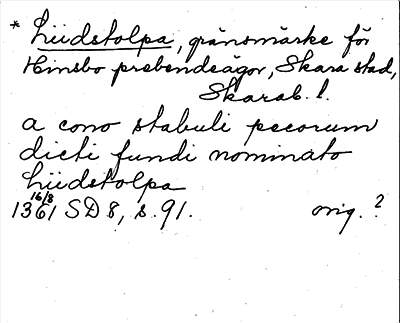 * Liidstolpa, gränsmärke för
Himsbo prebendeägor, Skara stad,
Skarab. l.
a cono stabuli pecorum
dicti fundi nominato
Liidstolpa
16/8
1361 SD 8, s. 91. orig. ?